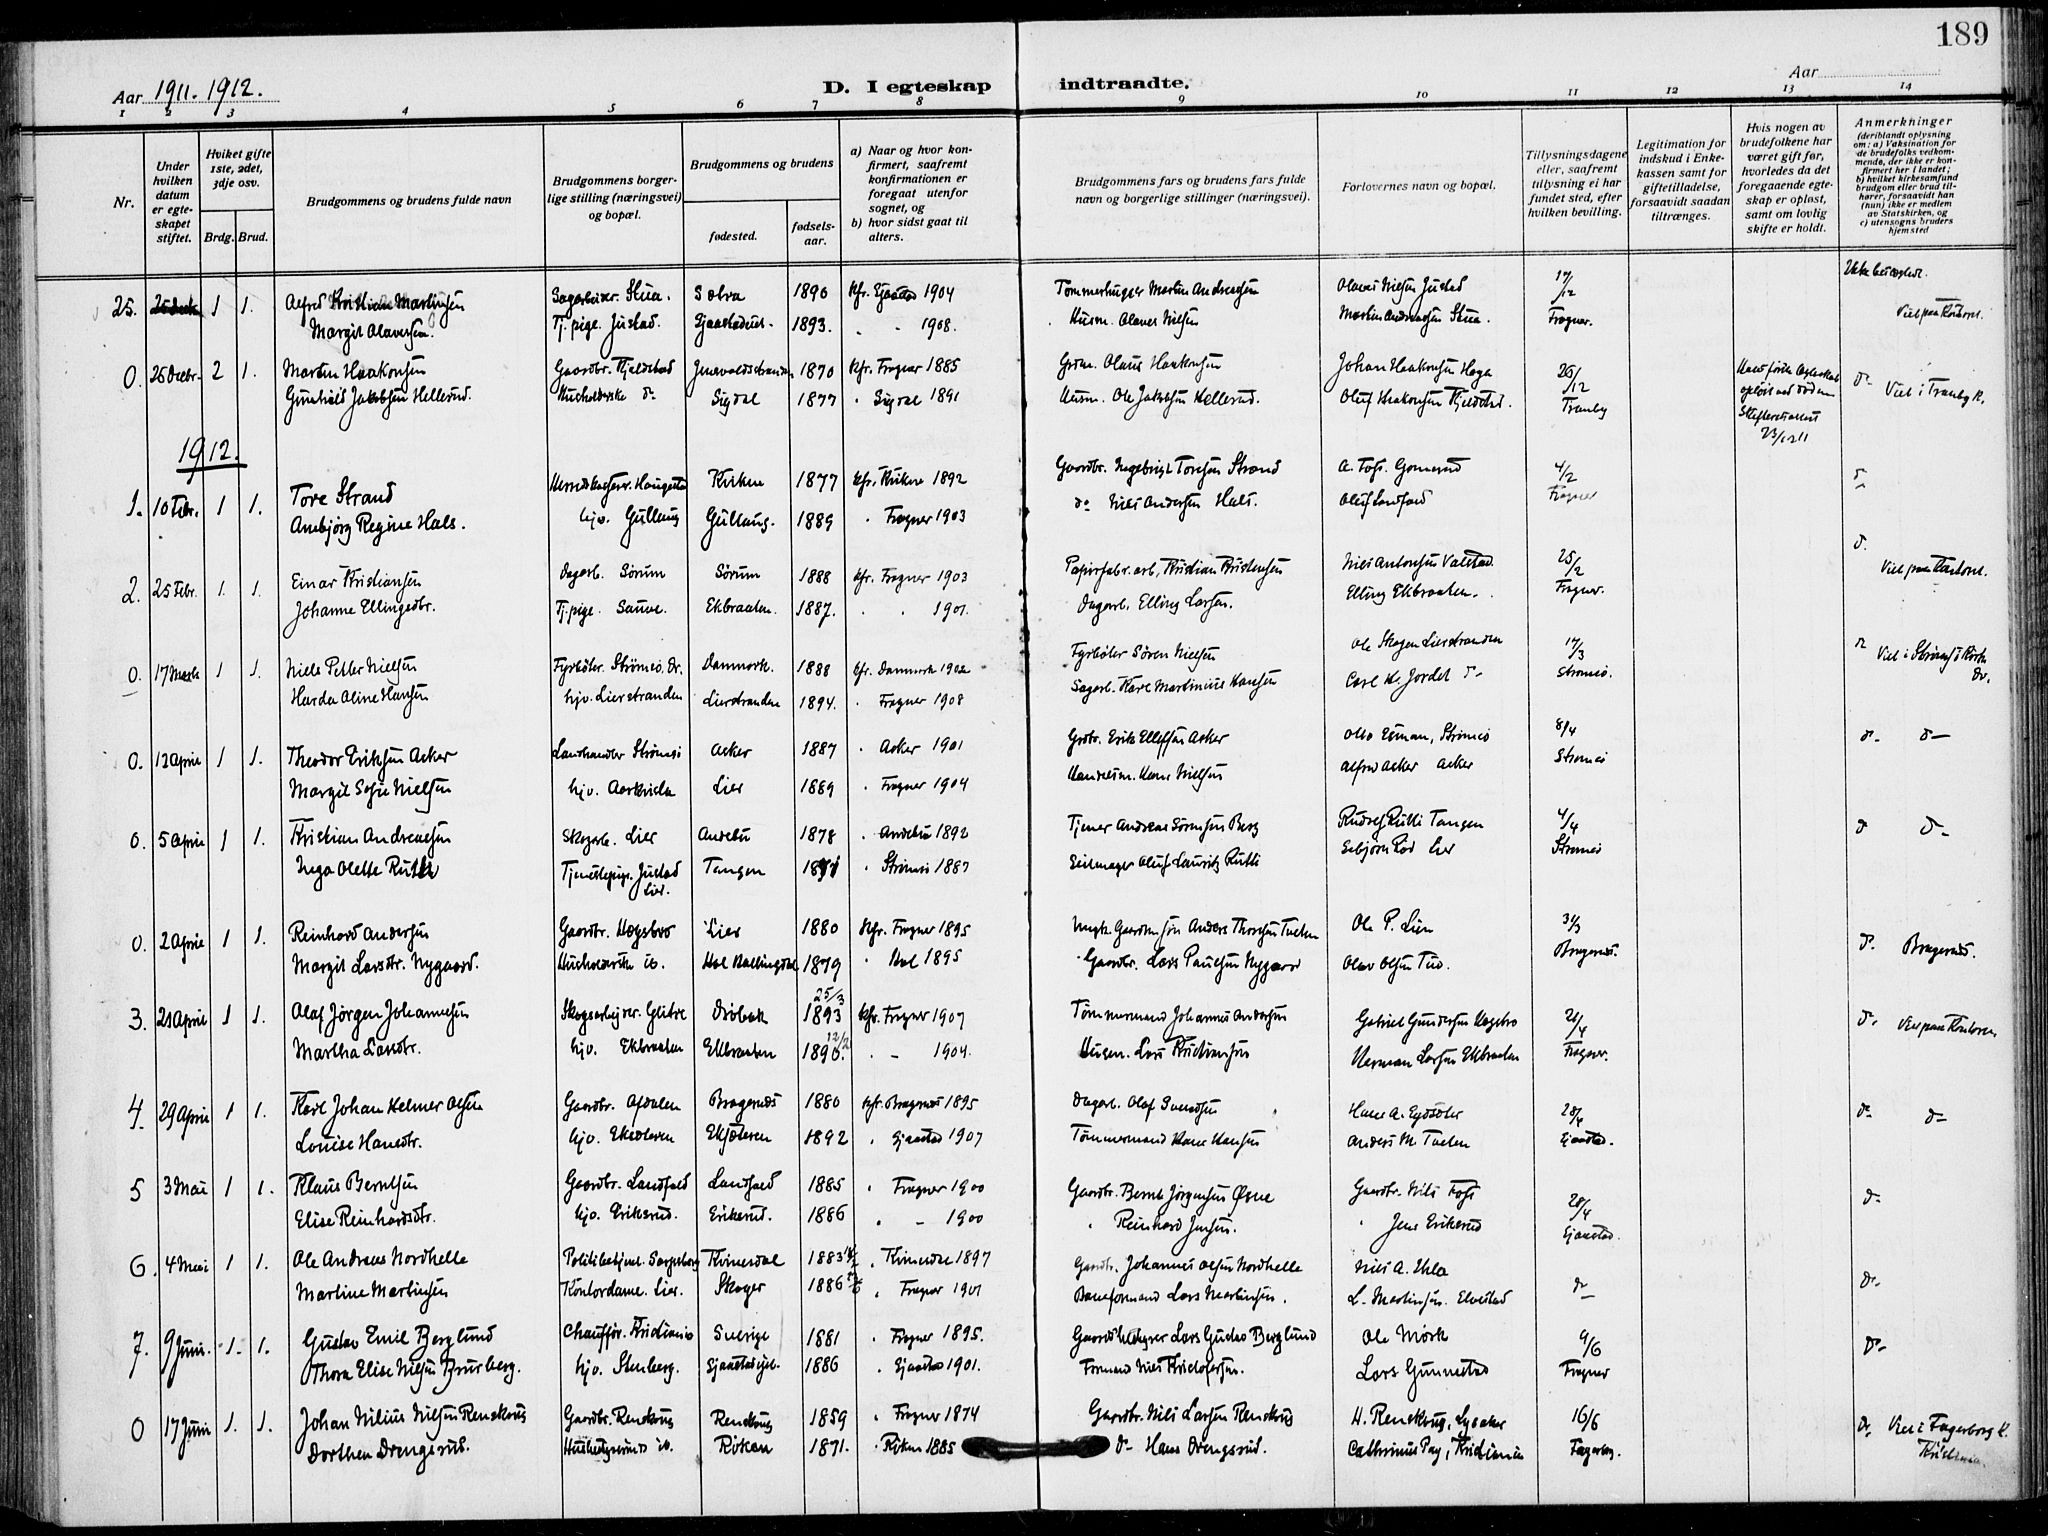 189
Aar 1911. 1912.
D. I egteskap indtraadte.
Aar
1 2 3 4 5 6 7 8 9 10 11 12 13 14
Nr.
Under hvilken datum er egteskapet stiftet.
Hviket gifte 1ste, 2det, 3dje osv.
Brdg. Brud.
Brudgommens og brudens fulde navn
Brudgommens borgerlige stilling (næringsvei) og bopæl.
Brudgommens og brudens
fødested.
fødselsaar.
a) Naar og hvor konfirmert, saafremt konfirmationen er foregaat utenfor sognet, og
b) hvor sidst gaat til alters.
Brudgommens fars og brudens fars fulde navn og borgerlige stillinger (næringsvei).
Forlovernes navn og bopæl.
Tillysningsdagene eller, saafremt tillysning ei har fundet sted, efter hvilken bevilling.
Legitimation for indskud i Enkekassen samt for giftetilladelse, forsaavidt saadan tiltrænges.
Hvis nogen av brudefolkene har været gift før, hvorledes da det foregaaende egteskap er opløst, samt om lovlig skifte er holdt.
Anmerkninger
(deriblandt oplysning om: a) Vaksination for de brudefolks vedkommende, der ikke er konfirmert her i landet; b) hvilket kirkesamfund brudgom eller brud tilhører, forsaavidt han (hun) ikke er medlem av Statskirken, og c) utensogns bruders hjemsted
25. 1 1. Alfred Kristian Martinsen Stua. Solva 1890 kfr. Sjaastad 1904 Tømmerhugger Martin Andreassen Olaves Nilsen Justad 17/12
Margit Olavesen. Tj. pige. Justad. 1893. " " 1908. Husm. Olaves Nilsen Martin Andreassen Stua. Fragner. Viet paa Kontoret.
0. 26 Decbr. 2 1. Martin Haakonsen Gaardbr. Kjeldstad 1870 kfr. Fragner 1885 Grdm. Olaus Haakonsen Johan Haakonsen Haga 26/12
Gunhild Jakobsen Hellerud. Husholderske do Sigdal 1877 " Sigdal 1891 Husm. Ole Jakobsen Hellerud. Oluf Haakonsen Kjeldstad. Tranby do Viet i Tranby K.
23/12 11
1912.
1. 10 Febr. 1 1. Tore Strand 1877 1892 Gaardbr. Ingebrigt Toresen Strand 4/2
Annbjørg Regine Hals. hjv. Gullaug Gullaug. 1889 " Fragner 1903 do Nils Andersen Hals. Oluf Landfald Fragner
2. 25 Febr. 1. 1. Einar Kristiansen Dagarb. Sørum Sørum 1888 kfr. Fragner 1903 Papirfabr.arb. Kristian Kristensen Nils Antonsen Valstad. 25/2 Viet paa Kontoret.
Johanne Ellingsdtr. Tj. pige. Ekbraaten. 1887. " " 1901. Dagarb. Elling Larsen. Elling Ekbraaten. Fragner.
0. 17 Marts 1 1. Niels Petter Nielsen Fyrbøter. Strømsø. Dr. Danmark. 1888 kfr. Danmark 1902 Fyrbøter Søren Nielsen Ole Skogen Lierstranden 17/3 Viet i Strømsø Kirke Dr.
Harda Oline Hansen hjv. Lierstranden Lierstranden 1894. " Fragner 1908 Sagarb. Karl Martinius Hansen Carl H. Jordet do Strømsø.
0. 12 April 1 1. Theodor Eriksen Asker Landhandler Strømsø Asker 1887 " Asker 1901 Grdbr. Erik Ellefsen Asker 8/4 do do
Margit Sofie Nielsen hjv. Lier 1889 " Fragner 1904 Handelsm. Hans Nielsen Alfred Asker Asker Strømsø
0. 5 April 1 1. Kristian Andreassen Skogarb. Lier Andebu 1878 " Andebu 1892 Tjener Andreas Sørensen Berg Rudolf Rutli Tangen 4/4 do do
Inga Olette Tjenestepige. Justad Lier. Tangen " Strømsø 1887 Seilmager Oluf Lauritz Rutli Strømsø
0. 2 April 1 1. Reinhard Andersen Gaardbr. Hægsbro Lier 1880 kfr. Fragner 1895 Anders Thorsen Tveten Ole P. Lien 31/3 do Bragernæs.
Margit Larsdtr. Nygaard. Husholderske ib. Hol Hallingdal 1879 " Hol 1895 Gaardbr. Lars Paulsen Nygaard Olav Olsen Tud. Bragernæs.
3. 21 April 1 1. Olaf Jørgen Johannesen Skogsarbeider. Glitre Drøbak 25/3 1893 kfr. Fragner 1907 Tømmermand Johannes Andersen Gabriel Gundersen Hægsbro 21/4 do Viet paa Kontoret
Martha Larsdtr. hjv. Ekbraaten Ekbraaten 12/2 1890. " 1904. Husm. Lars Kristiansen Herman Larsen Ekbraaten Fragner.
4. 29 April 1 1. Karl Johan Helmer Olsen Gaardbr. Bragernæs 1880 kfr. Bragernæs 1895 Dagarb. Olaf Svendsen Hans A. 28/4 do do
Louise Hansdtr. hjv. Ekjøleren 1892 " Sjaastad 1907 Tømmermand Hans Hansen Anders M. Tveten Sjaastad.
5 3 Mai 1 1. Klaus Berntsen Gaardbr. Landfald Landfald 1885 " Fragner 1900 Gaardbr. Bernt Jørgensen Gaardbr. Nils Foss 28/4 do
Elise Reinhardsdtr. hjv. Eriksrud. Eriksrud. 1886 " 1900 " Reinhard Jensen. " Jens Eriksrud Sjaastad.
6. 4 Mai 1 1. Ole Andreas Nordhelle Politibetjent. Sarpsborg Kvinesdal 1883 " Kvinesdal 1897 Gaardbr. Johannes Olsen Nordhelle Nils A. do
Martine Martinsen Kontordame. Lier. Skoger 1886 " Fragner 1901 Baneformand Lars Martinsen. L. Martinsen. do
7. 9 Juni. 1. 1. Gustav Emil Berglund Chauffør. Kristiania Sverige 1881 " Fragner 1895. Lars Gustav Berglund Ole Mørk 9/6 do
Thora Elise Nilsen hjv. Stenberg. 1886 " Sjaastad 1901. Formand Nils Kristofersen. Lars Gunnestad Fragner
0 17 Juni 1. 1. Johan Nilius Nilsen Renskoug Gaardbr. Renskoug Renskoug 1859 " Fragner 1874 Gaardbr. Nils Larsen Renskoug H. Renskoug, Lysaker 16/6 do Viet i Fagerborg K. Kristiania.
Dorthea Drengsrud. ib. Røken 1871. " Røken 1885 do Hans Drengsrud. Kristiania Fagerborg.